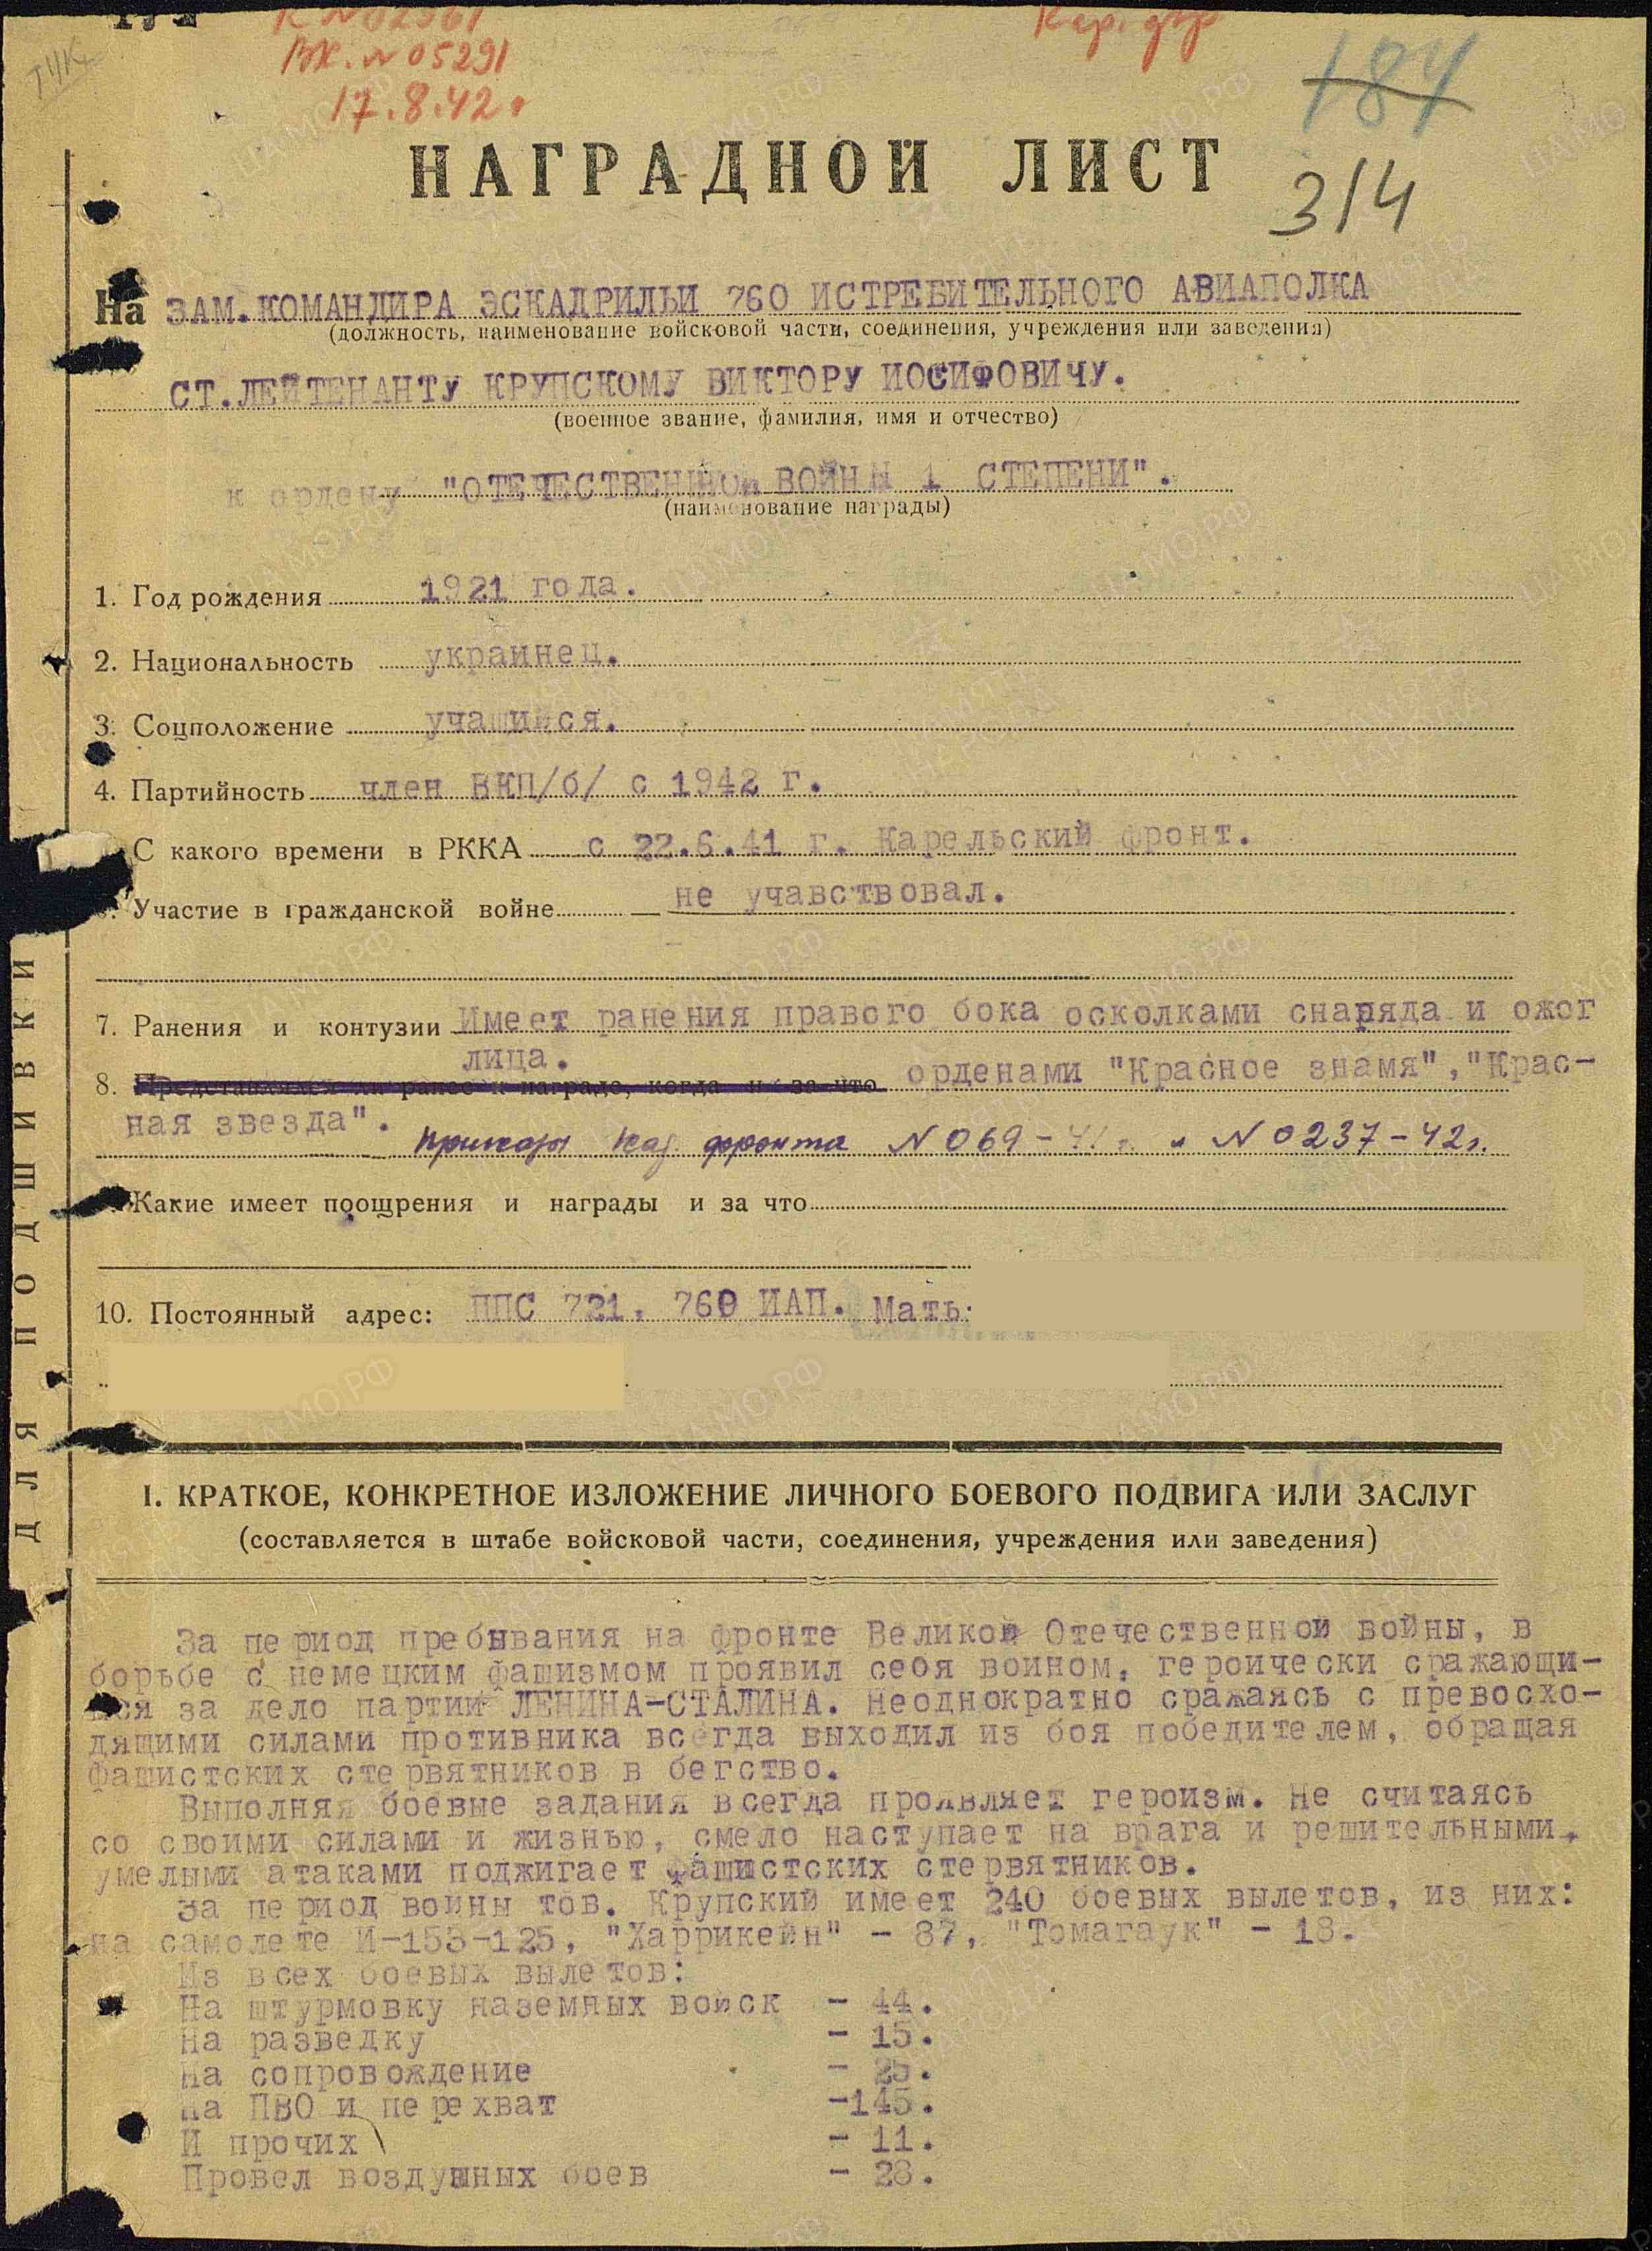 К №02961
Вх. №05291
17.8.42 г.
Кар. фр
184
314
НАГРАДНОЙ ЛИСТ
На ЗАМ.КОМАНДИРА ЭСКАДРИЛЬИ 760 ИСТРЕБИТЕЛЬНОГО АВИАПОЛКА
(должность, наименование войсковой части, соединения, учреждения или заведения)
СТ.ЛЕЙТЕНАНТУ КРУПСКОМУ ВИКТОРУ ИОСИФОВИЧУ.
(военное звание, фамилия, имя и отчество)
к ордену "ОТЕЧЕСТВЕННОй ВОЙНЫ 1 СТЕПЕНИ".
(наименование награды)
1. Год рождения 1921 года.
2. Национальность украинец.
3. Соцположение учащийся.
4. Партийность член ВКП/б/ с 1942 г.
С какого времени в РККА с 22.6.41 г. Карельский фронт.
Участие в гражданской войне — не учавствовал.
7. Ранения и контузии Имеет ранения правого бока осколками снаряда и ожог
лица.
8. Представлялся ли ранее к награде, когда и за что орденами "Красное знамя","Крас-
ная звезда". Приказы Кар. фронта №069-41г. и №0237-42г.
Какие имеет поощрения и награды и за что
10. Постоянный адрес: ППС 721, 760 ИАП. Мать:
ДЛЯ ПОДШИВКИ
I. КРАТКОЕ, КОНКРЕТНОЕ ИЗЛОЖЕНИЕ ЛИЧНОГО БОЕВОГО ПОДВИГА ИЛИ ЗАСЛУГ
(составляется в штабе войсковой части, соединения, учреждения или заведения)
За период пребывания на фронте Великой Отечественной войны, в
борьбе с немецким фашизмом проявил себя воином, героически сражающи-
мся за дело партии ЛЕНИНА-СТАЛИНА. Неоднократно сражаясь с превосхо-
дящими силами противника всегда выходил из боя победителем, обращая
фашистских стервятников в бегство.
Выполняя боевые задания всегда проявляет героизм. Не считаясь
со своими силами и жизнью, смело наступает на врага и решительными,
умелыми атаками поджигает фашистских стервятников.
За период войны тов. Крупский имеет 240 боевых вылетов, из них:
на самолете И-153-125, "Харрикейн" - 87, "Томагаук" - 18.
Из всех боевых вылетов:
На штурмовку наземных войск - 44.
На разведку - 15.
На сопровождение - 25.
На ПВО и перехват -145.
И прочих - 11.
Провел воздушных боев - 28.